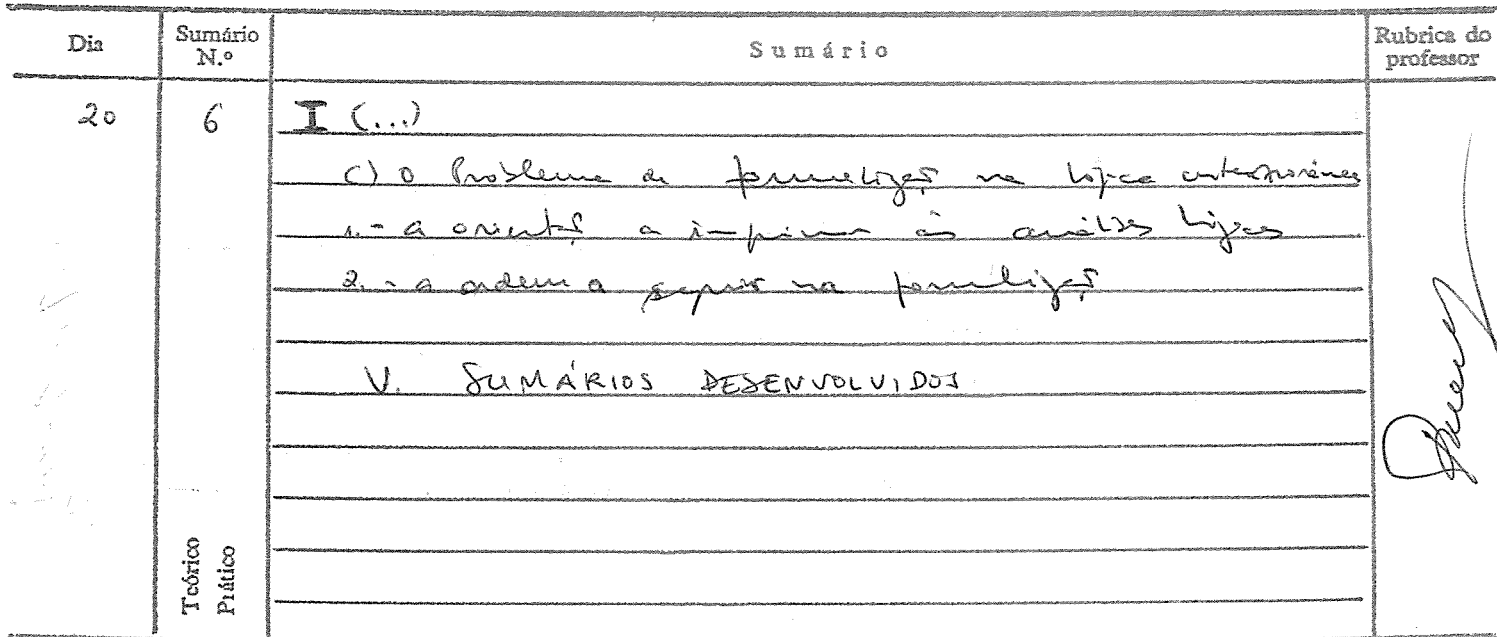 Dia
Sumário N.º
Sumário
Rubrica do professor
20
6
I (...)
c) O Problema da formalizaç̃ na lógica contemporânea
1. - a orientaç̃ a imprimir às análises lógicas
2. - a ordem a seguir na formalizaç̃
V. SUMÁRIOS DESENVOLVIDOS
Teórico
Prático